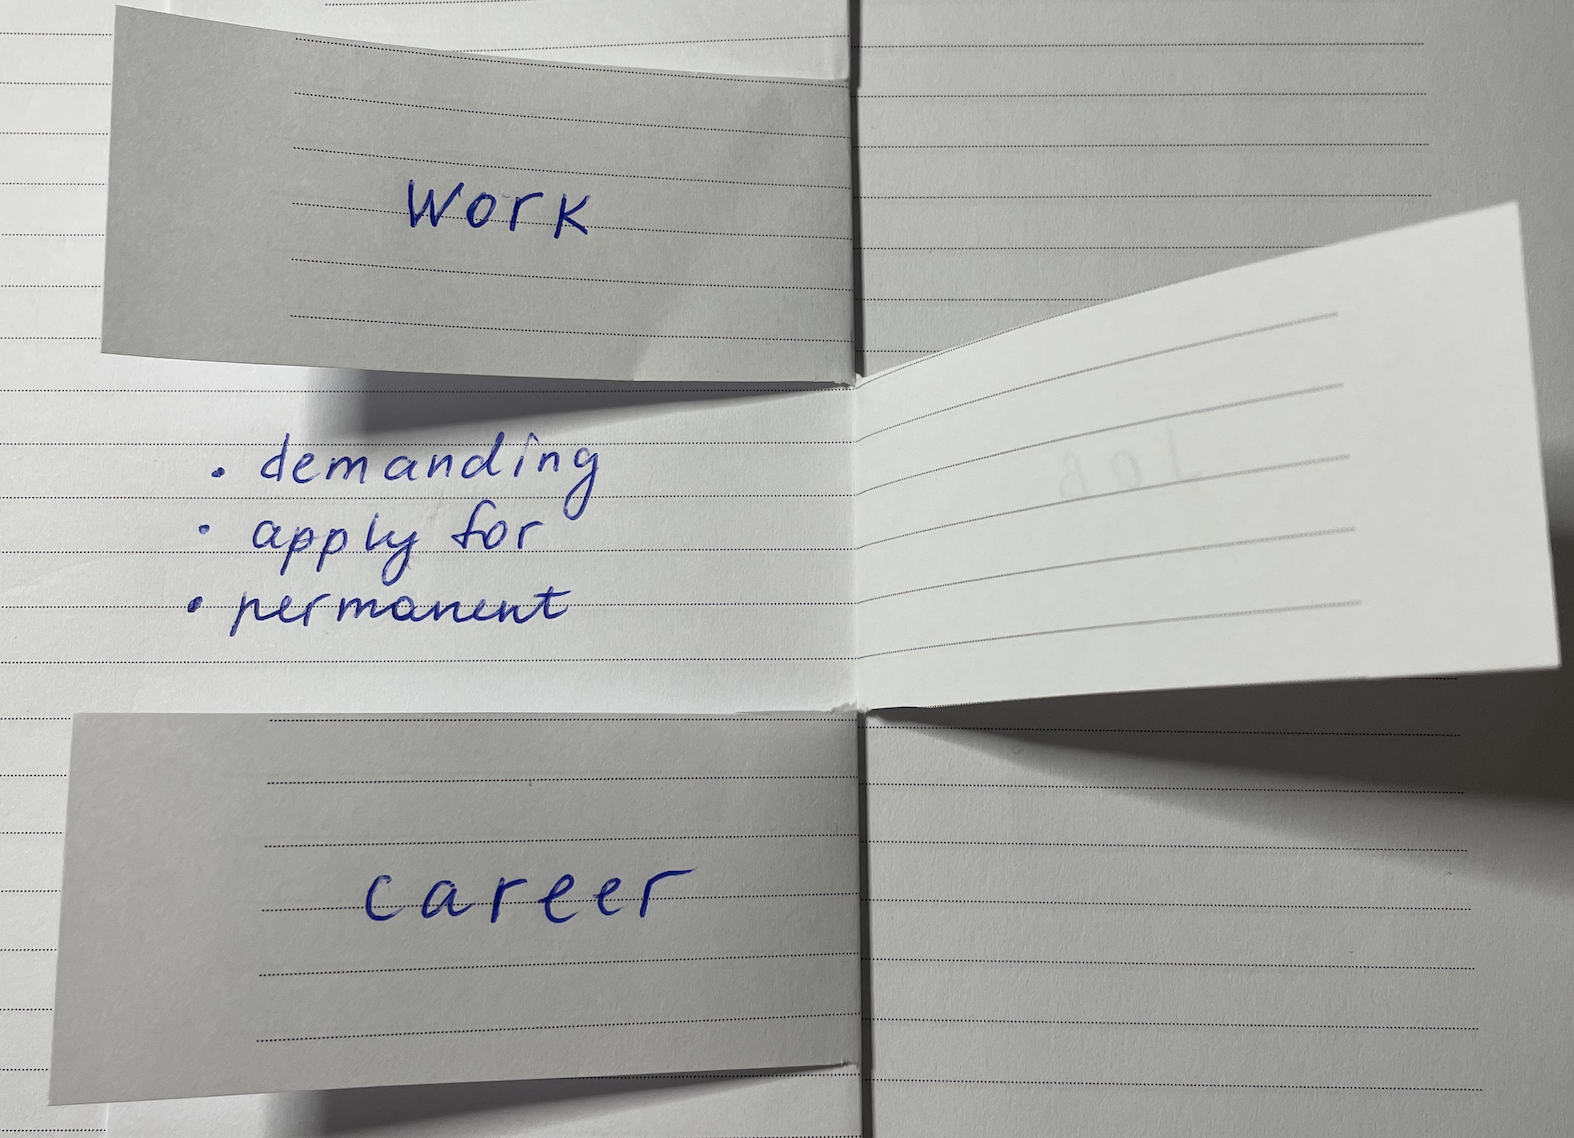 work
• demanding
• apply for
• permanent
JOB
career